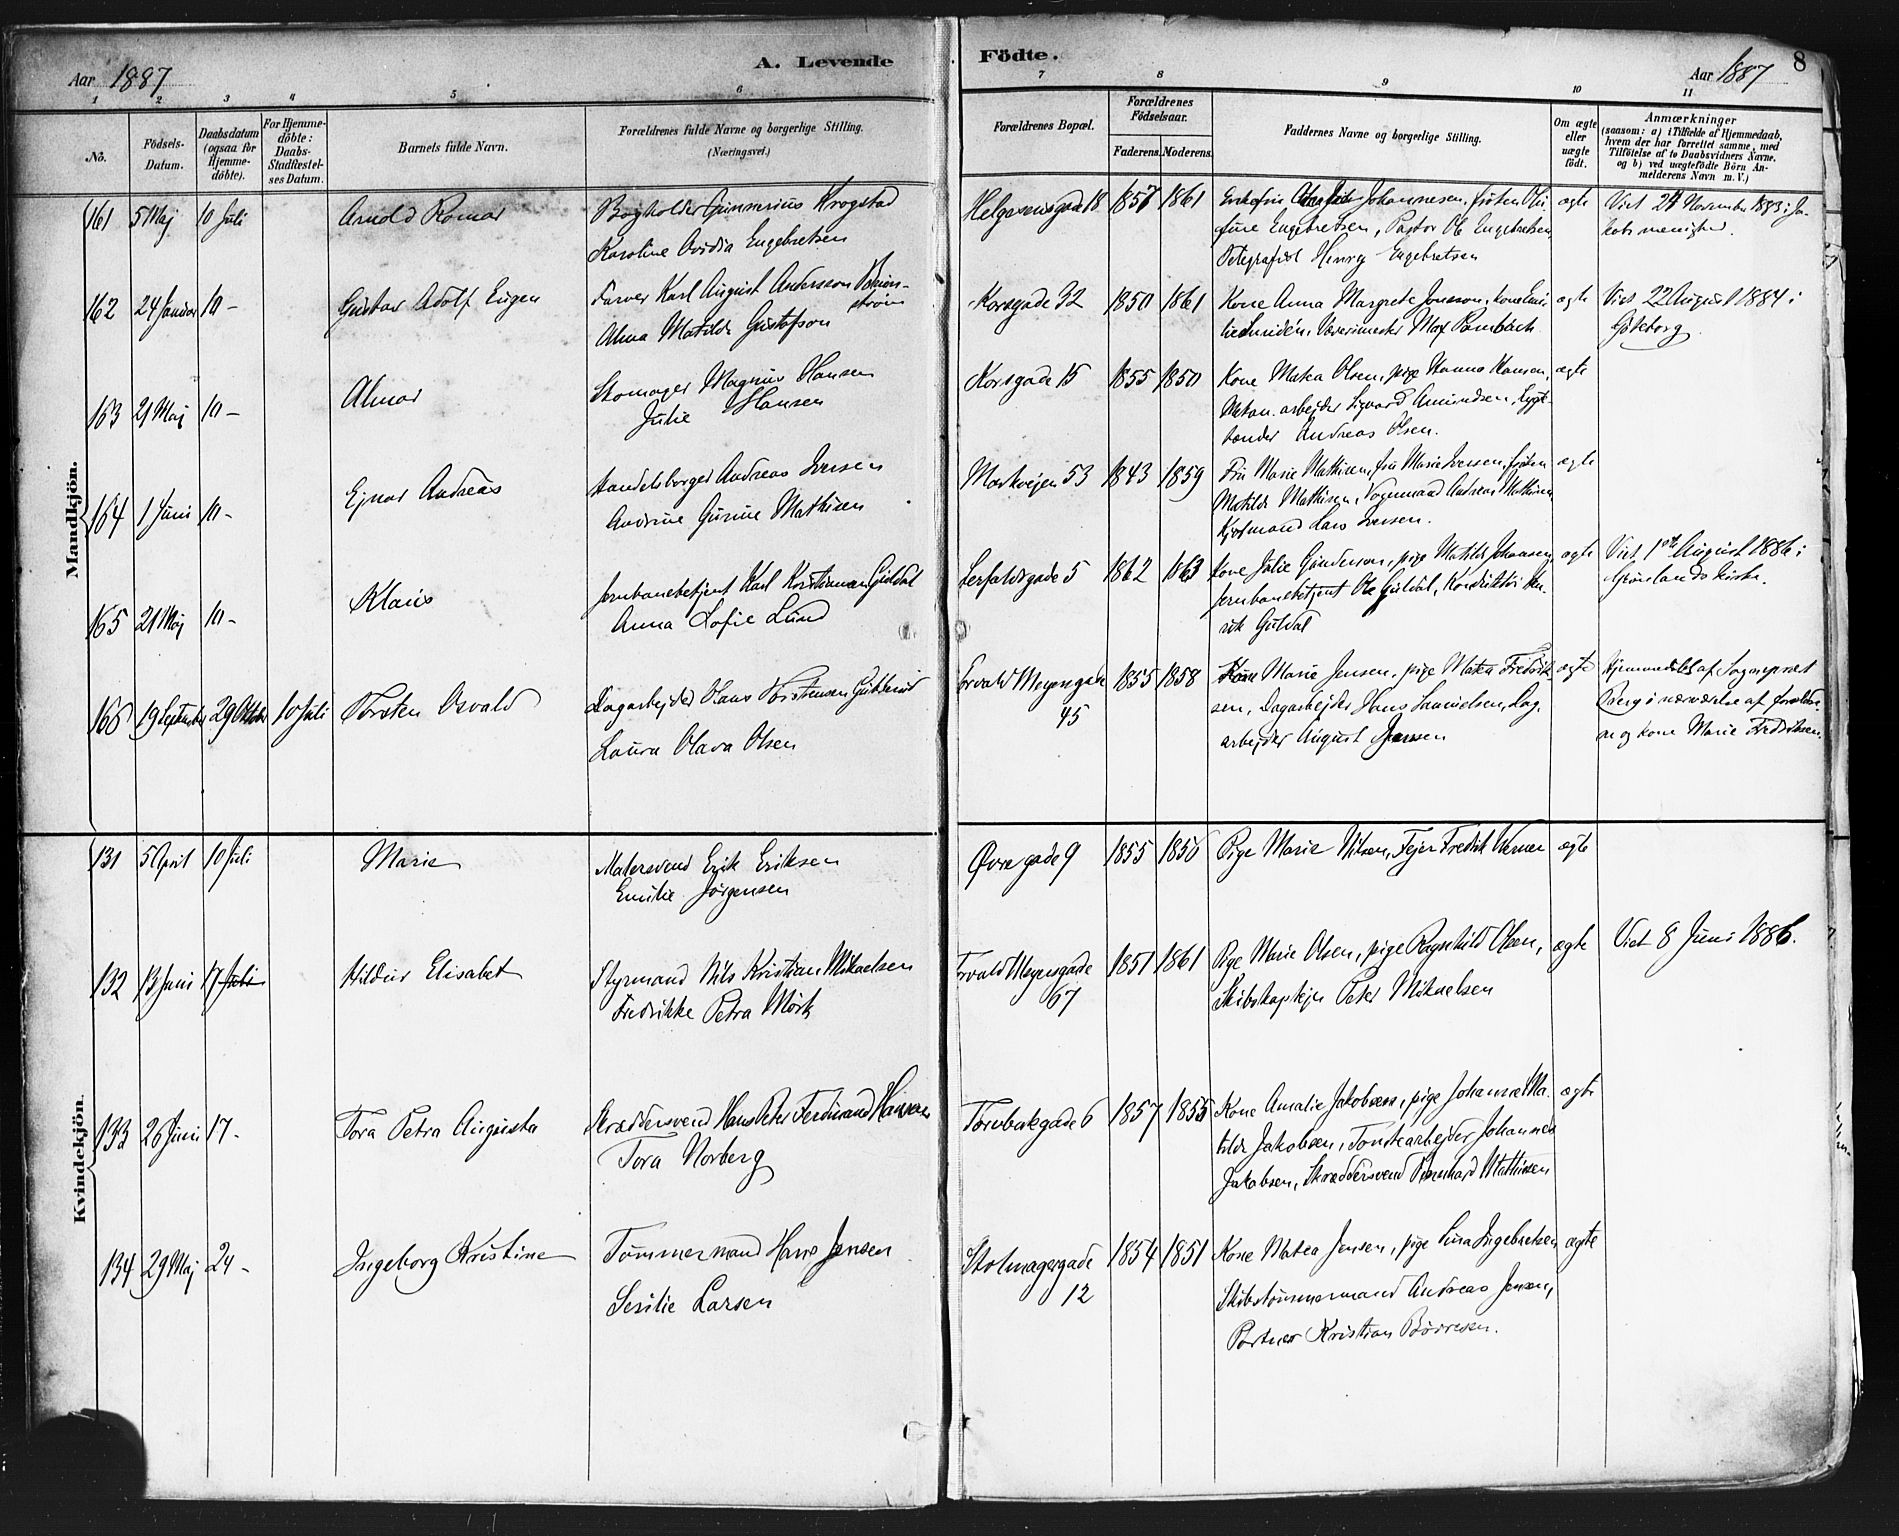 Aar 1887
A. Levende
Födte.
Aar 1887
8
1 2 3 4 5 6 7 8 9 10 11
No.
Födsels-
Datum.
Daabsdatum
(ogsaa for
Hjemme-
döbte).
For Hjemme-
döbte:
Daabs-
Stadfæstel-
ses Datum.
Barnets fulde Navn.
Forældrenes fulde Navne og borgerlige Stilling.
(Næringsvei.)
Forældrenes Bopæl.
Forældrenes
Födselsaar.
Faderens. Moderens.
Faddernes Navne og borgerlige Stilling.
Om ægte
eller
uægte
födt.
Anmærkninger
(saasom: a) i Tilfælde af Hjemmedaab,
hvem der har forrettet samme, med
Tilföielse af to Daabsvidners Navne,
og b) ved uægtefödte Börn An-
melderens Navn m. V.)
Mandkjön.
161 5 Maj 10 Juli Arnold Ragnar
Bogholder Gunnerius Krogstad
Karoline Ovidia Engebretsen
Helgesensgade 18 1857 1861
Johannesen, frøken
Engebretsen, Pastor Ole Engebretsen,
Telegrafist Henry Engebretsen
ægte
Viet 24 November 1883 i Ja-
kobs menighed.
162 24 Januar 10 – Gustav Adolf Eugen
Farver Karl August Andersson
strøm
Alma Matilda Gustafson
Korsgade 32 1850 1861
Kone Anna Margrete Jonsson, kone Emi-
lie Smidén, Væverimester Max Rambach
ægte
Viet 22 August 1884 i
Göteborg.
163 21 Maj 10 – Almar
Skomager Magnus Hansen
Julie Hansen
Korsgade 15 1855 1850
Kone Matea Olsen, pige Hanna Hansen,
Metan. arbejder Sigvard Amundsen, Lygt-
tænder Andreas Olsen.
ægte
164 1 Juni 10 – Ejnar Andreas
Handelsborger Andreas Iversen
Andrine Gurine Mathisen
Markvejen 53 1843 1859
Fru Marie Mathisen, fru Marie Iversen, frøken
Matilde Mathisen, Vognmand Andreas Mathisen,
Kjøbmand Lars Iversen.
ægte
165 21 Maj 10 – Klaus
Jernbanebetjent Karl Kristiernan Guldal
Anna Sofie Lund
Lerfaldsgade 5 1862 1863
Kone Julie Gunderson, pige Matilde Johansen,
Jernbanebetjent Ole Guldal, Konduktør Hen-
rik Guldal
ægte
Viet 1ste August 1886 i
Grønlands kirke.
165 19 September 29 Oktober 10 Juli Torsten Osvald
Dagarbejder Olaus Torstensen
Laura Olava Olsen
Torvald Meyersgade
45
1855 1858
Kone Marie Jensen, pige Matea Fredrik-
sen, Dagarbejder Hans Samuelsen, Dag-
arbejder August Jensen
ægte
Hjemmedøbt af Sogneprest
Bverg i nærværelse af foreldre-
ne og kone Marie Fredriksen.
Kvindekjön.
131 5 April 10 Juli Marie
Malersvend Erik Eriksen
Emilie Jørgensen
Øvregade 9 1855 1856
Pige Marie Nilsen, Fejer Fredrik Werner
ægte
132 13 Juni 17 Juli Hildur Elisabet
Styrmand Nils Kristian Mikaelsen
Fredrikke Petra Mørk
Torvald Meyersgade
67
1851 1861
Pige Marie Olsen, pige Ragnhild Olsen,
Skibskaptejn Peter Mikaelsen
ægte
Viet 8 Juni 1886.
133 26 Juni 17 – Tora Petra Augusta
Skræddersvend Hans Peter Ferdinand Hansen
Tora Norberg
Torvbakgade 6 1857 1855
Kone Amalie Jakobsen, pige Johanne Ma-
tilde Jakobsen, Tomtearbejder Johannes
Jakobsen, Skræddersvend Bernhard Mathisen
ægte
134 29 Maj 24 – Ingeborg Kristine
Tømmermand Hans Jensen
Sesilie Larsen
Stolmagergade
12
1854 1851
Kone Matea Jensen, pige Lina Ingebretsen,
Skibstømmermand Andreas Jensen,
Portner Kristian Børresen.
ægte